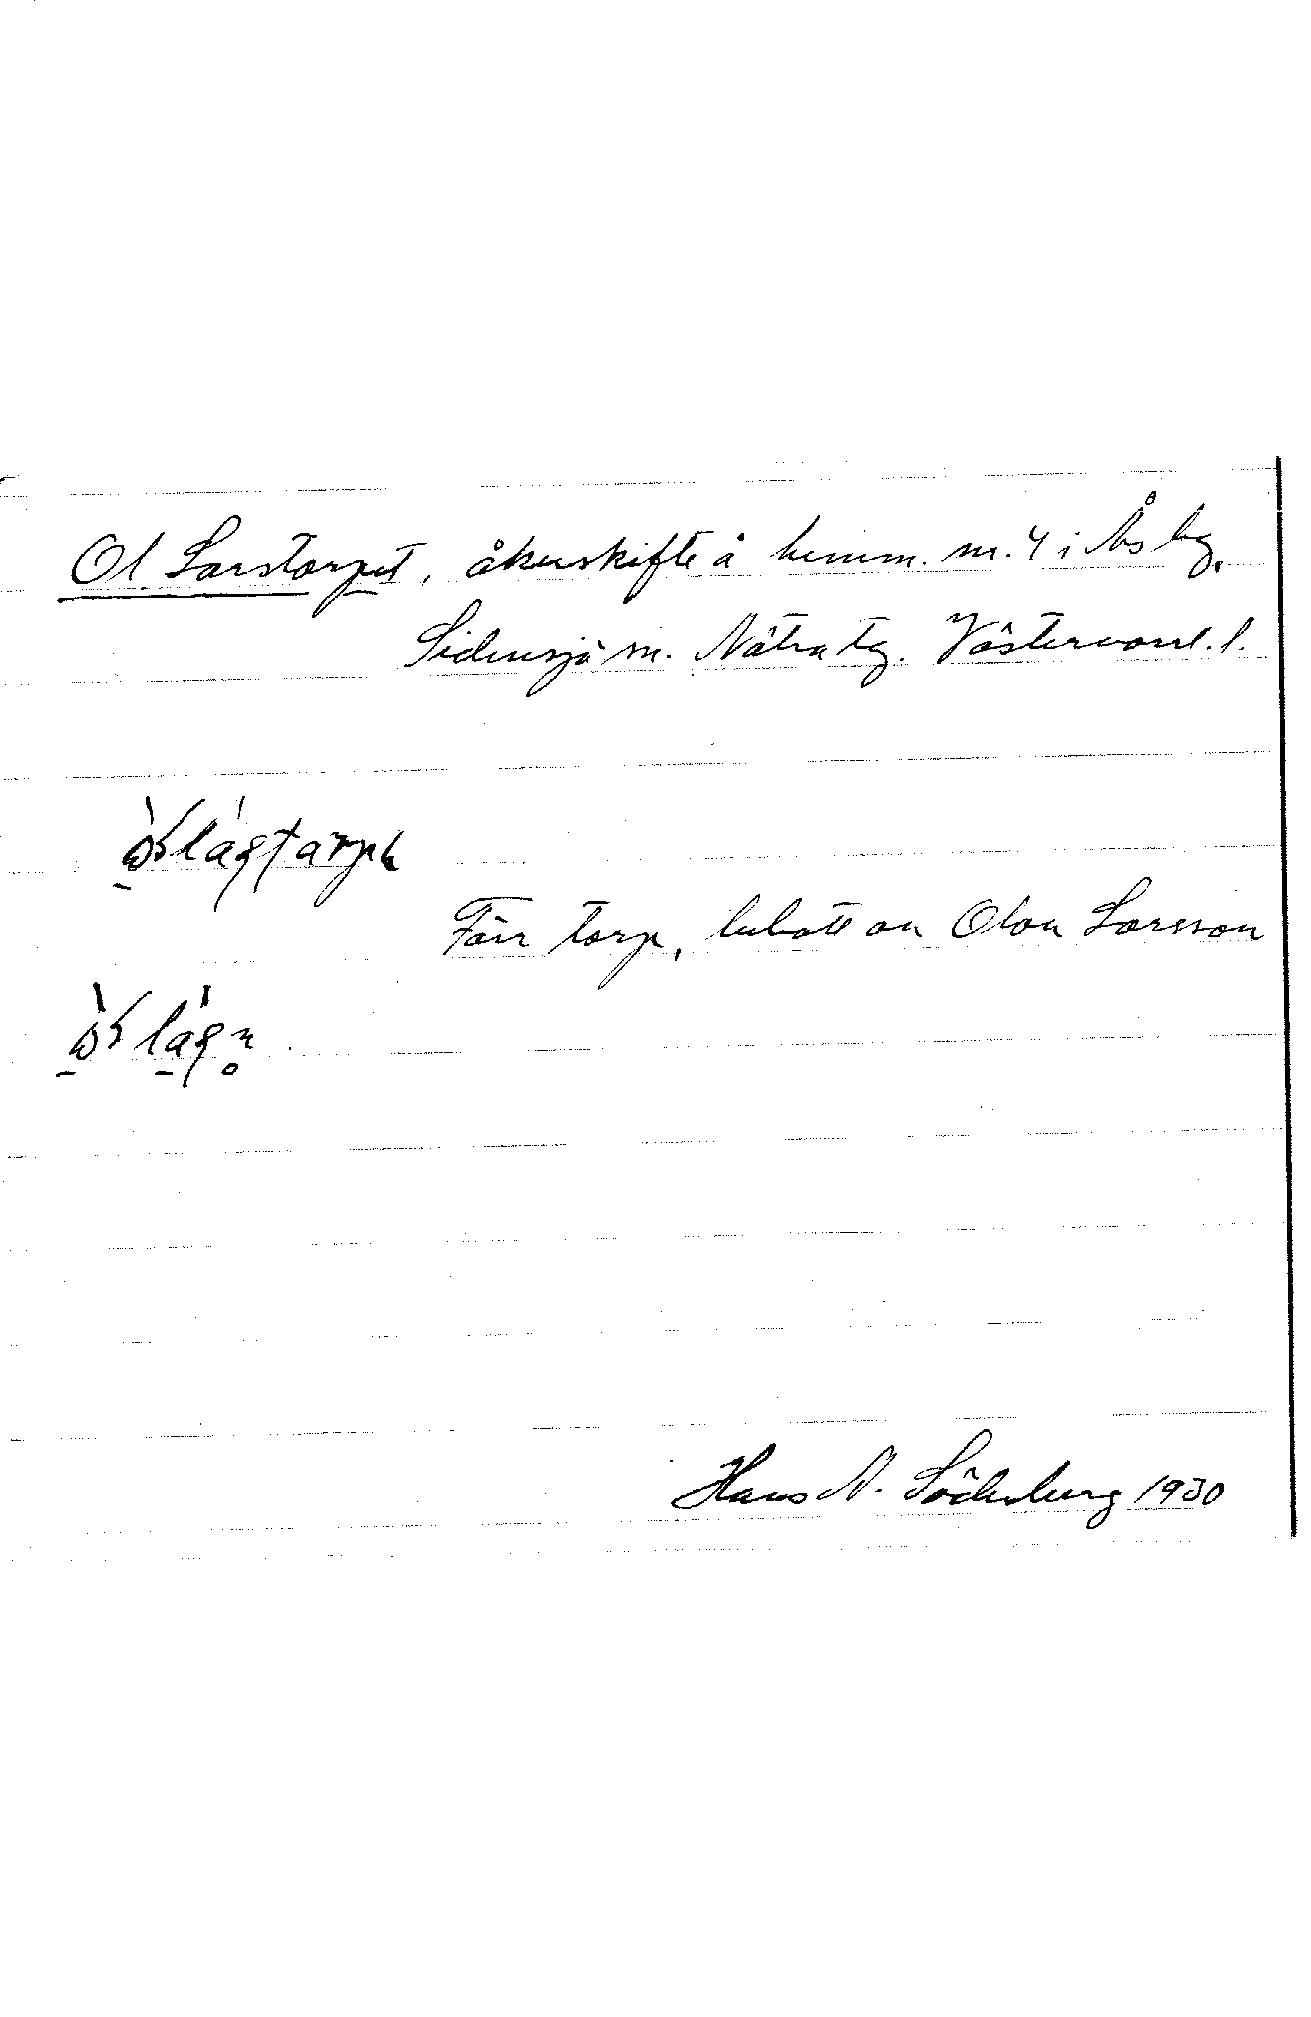 Ol Larstorpet, åkerskifte å hemm. nr. 4 i Ås by,
Sidensjö sn. Nätra tg. Västernorrl. l.
Förr torp, bebott av Olov Larsson
Hans N. Söderberg 1930